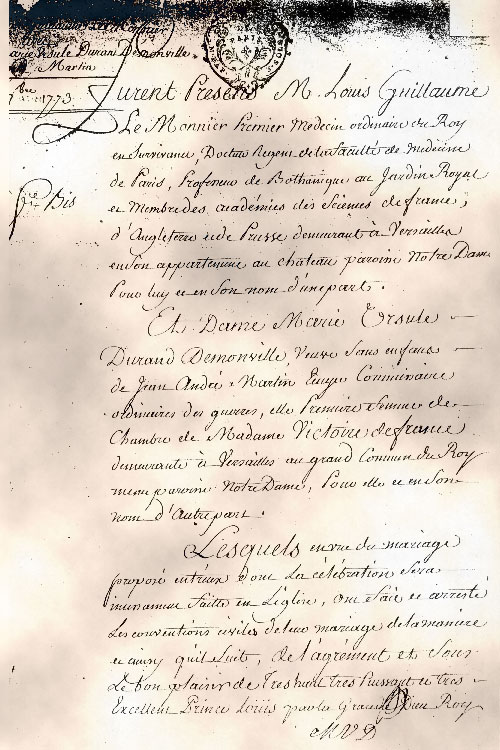 arie Ursule Durand Demonville
Martin
7bre 1773
Furent Présens M. Louis Guillaume
Le Monnier Premier Medecin ordinaire du Roy
en Survivance, Docteur Regent de la faculté de medecine
de Paris, Professeur de Bothanique au Jardin Royal
et Membre des académies des Sciences de france,
d'Angleterre et de Prusse demeurant à Versailles
en son appartement au château paroisse Notre Dame
Pour luy et en son nom d'une part.
Et Dame Marie Ursule
Durand Demonville Veuve sans enfans
de Jean André Martin Ecuyer Commissaire
ordinaires des guerres, elle Premiere femme de
Chambre de Madame Victoire de france
demeurante à Versailles au grand Commun du Roy
même paroisse Notre Dame, Pour elle et en son
nom d'autre part.
Bis
Lesquels en vue du mariage
proposé entr'eux dont la célébration sera
incessamment faitte en L'église, ont fait et arresté
Les conventions civiles de leur mariage de la maniere
et ainsy qu'il suit, de l'agrément et sous
Le bon plaisir de Tres haut tres Puissant et tres
Excellent Prince Louis par la Grace de Dieu Roy